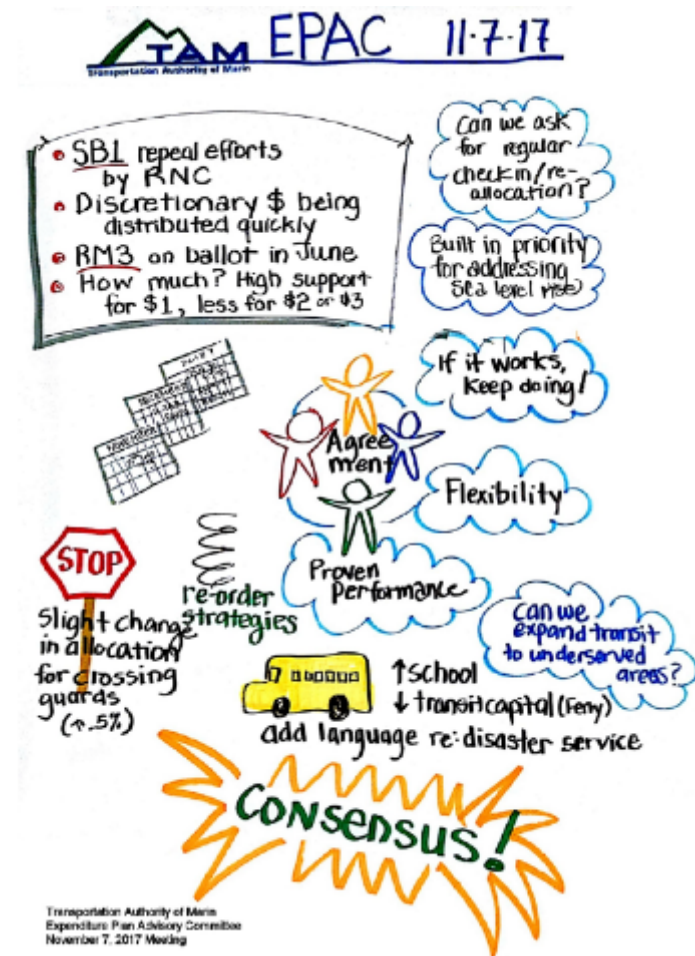 TAM EPAC 11-7-17
Transportation Authority of Marin
• SB1 repeal efforts
by RNC
• Discretionary $ being
distributed quickly
• RM3 on ballot in June
• How much? High support
for $1, less for $2 or $3
Can we ask
for regular
check in/re-
allocation?
Built in priority
for addressing
sea level rise)
If it works,
keep doing!
Agree
ment
Flexibility
Proven
performance
re-order
strategies
STOP
Slight change
in allocation
for crossing
guards
(↑.5%)
Can we
expand transit
to underserved
areas?
↑school
↓transit capital (Ferry)
add language re: disaster service
CONSENSUS!
Transportation Authority of Marin
Expenditure Plan Advisory Committee
November 7, 2017 Meeting